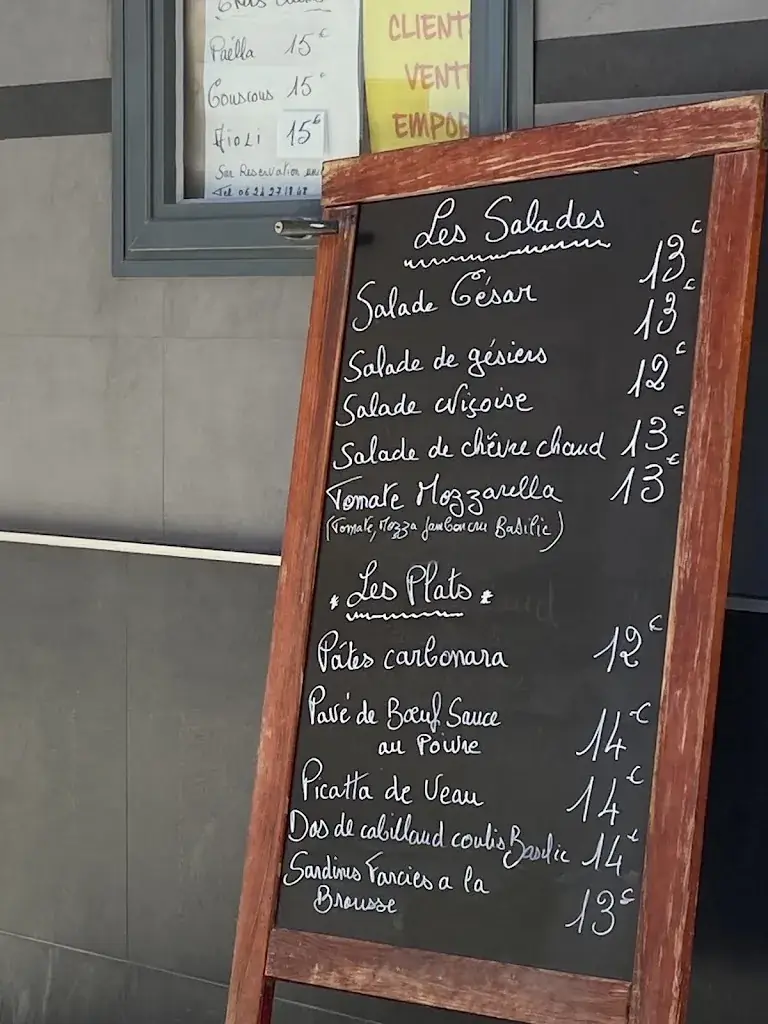 Paëlla 15€
Couscous 15€
Aïoli 15€
Sur Reservation
Tél 06 24 27 18 48
CLIENT
VENT
EMPOR
Les Salades
Salade César 13€
Salade de gésiers 13€
Salade Niçoise 12€
Salade de chèvre chaud 13€
Tomate Mozzarella 13€
(Tomate, Mozza Jambon cru Basilic)
Les Plats
Pâtes carbonara 12€
Pavé de Bœuf Sauce
au Poivre 14€
Picatta de Veau 14€
Dos de cabillaud coulis Basilic 14€
Sardines Farcies a la
Brousse 13€